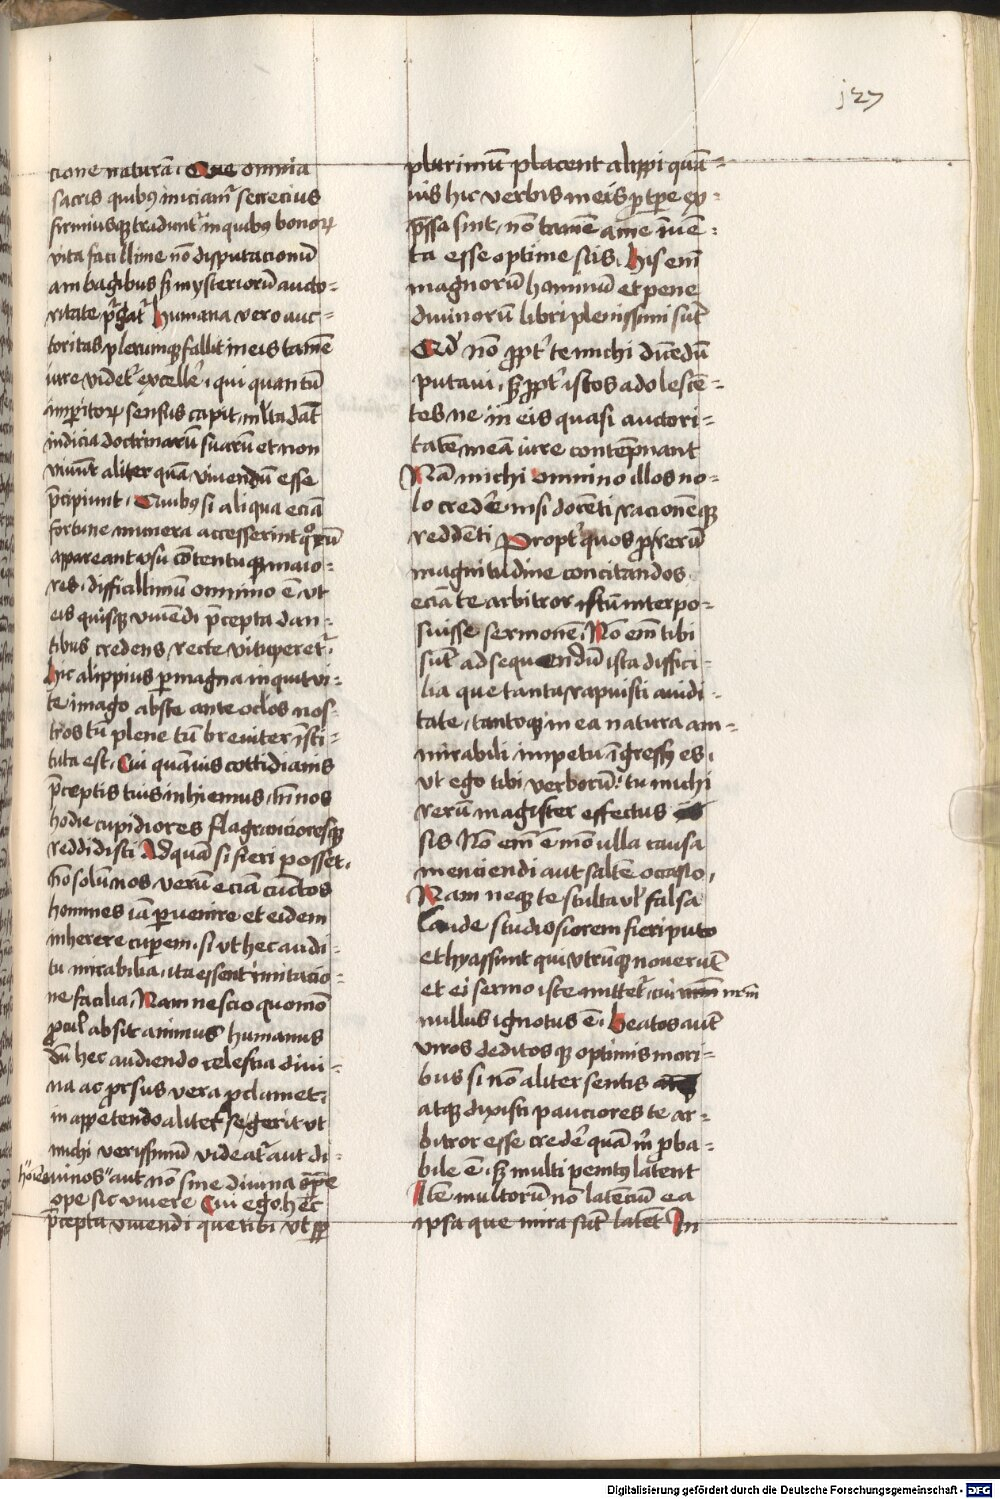 127
cione naturā. Que omnia
sacris quibꝰ iniciamr̄ secrecius
firmiusqꝫ tradunt᷑ in quibꝰ bonoꝝ
vita facillime nō disputacionū
ambagibus sꝫ mysteriorū aucto-
ritate purgat᷑ humana vero auc-
toritas plerumqꝫ fallit in eis tamē
iure videt᷑ excelle᷑ qui quantū
imperitoꝝ sensus capit multa dāt
indicia doctrinarū suarū et non
viuūt aliter quā viuendū esse
p̄cipiunt. Quibꝰ si aliqua eciā
fortune munera accesserint quoꝝ
appareant vsu cōtentuqꝫ maio-
res. difficillimū omnino ē vt
eis quisqꝫ viuēdi p̄cepta dan-
tibus credens recte vituperet᷑.
hic alippius permagna inquit vi-
te imago abs te ante oclos nos-
tros tū plene tū breuiter cōsti-
tuta est. Cui quāuis cottidianis
p̄ceptis tuis inhiemus tn̄ nos
hodie cupidiores flagrancioresqꝫ
reddidisti Ad quā si fieri posset.
nō solū nos verū eciā cūctos
homines iā peruenire et eidem
inherere cuperem. si vt hec audi-
tu mirabilia. ita essent imitacio-
ne facilia. Nam nescio quomō
procul absit animus humanus
dū hec audiendo celestia diui-
na ac prorsus vera proclamet.
in appetendo aliter se gerit vt
michi verissimū videat᷑ aut di-
hoīes uinos aut nō sine diuina
ope sic viuere Cui ego. hec
p̄cepta viuendi que tibi vt semper
plurimū placent alippi quā-
uis hic verbis meis pro tpe ex-
p̄ssa sint. nō tamē a me inuē-
ta esse optime scis. his em̄
magnorū hominū et pene
diuinorū libri plenissimi sūt
Qd̄ nō propt᷑ te michi dicēdū
putaui. sꝫ propt᷑ istos adolescē-
tes ne in eis quasi auctori-
tatē meā iure contēpnant
Nā michi omnino illos no-
lo credere nisi docēti racionēqꝫ
reddēti Propt᷑ quos pro rerū
magnitudine concitandos
eciā te arbitror istū interpo-
suisse sermonē. Nō em̄ tibi
sūt ad sequendū ista diffici-
lia que tanta rapuisti auidi-
tate. tantoqꝫ in ea natura am-
mirabili impetu īgressꝰ es.
vt ego tibi verborū. tu michi
rerū magister effectus
sis Nō em̄ ē mō vlla causa
menciendi aut saltē occasio.
Nam neqꝫ te stulta ul̄ falsa
laude studiosiorem fieri puto
et hy assunt qui vtrūqꝫ nouerūt
et ei sermo iste mittet᷑ cui nrm̄
nullus ignotus ē. Beatos aūt
viros deditosqꝫ optimis mori-
bus si nō aliter sentis
atqꝫ dixisti pauciores te ar-
bitror esse credē quā mͥ proba-
bile ē. sꝫ multi penitꝰ latent
Itē multorū nō latēciū ea
ipsa que mira sūt latēt In
Digitalisierung gefördert durch die Deutsche Forschungsgemeinschaft - DFG